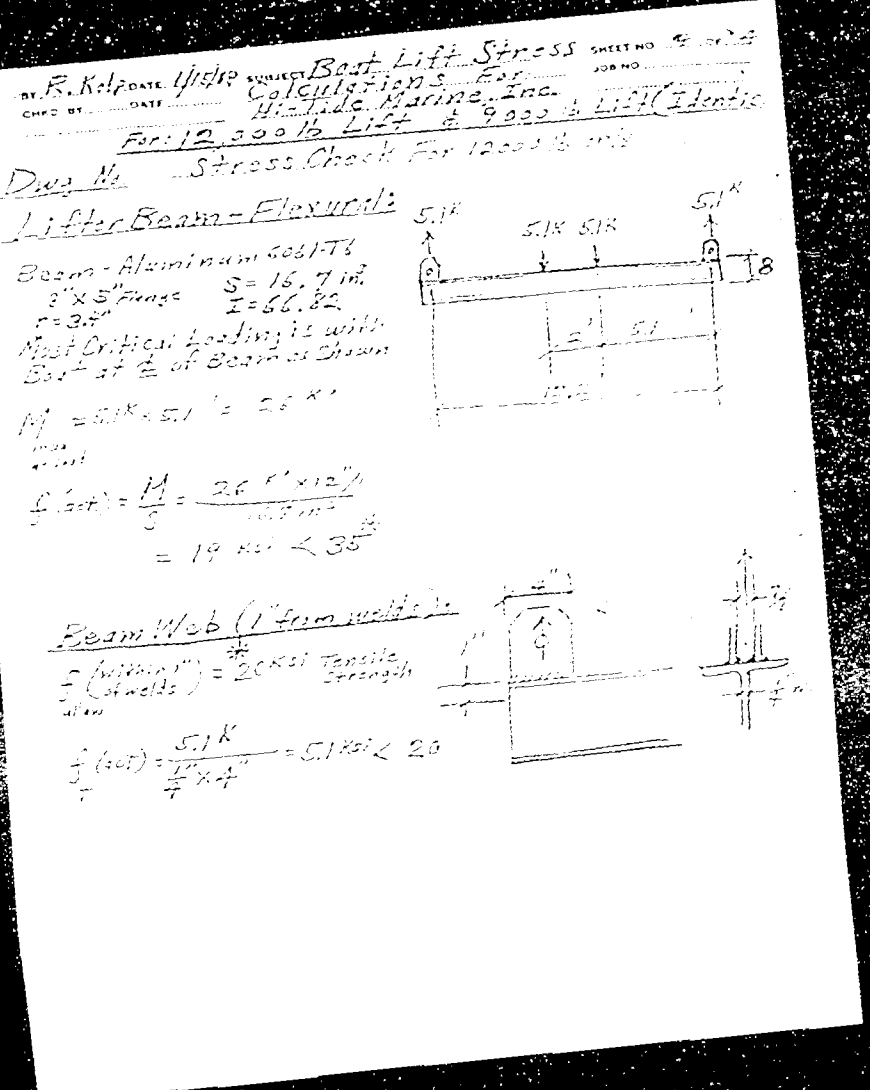 BY R. Kolp DATE 1/15/89 SUBJECT Boat Lift Stress SHEET NO. 4 OF
CHKD BY DATE Calculations For JOB NO.
Hi-Tide Marine, Inc.
For: 12,000 lb Lift & 9000 lb Lift (Identic
Dwg No Stress Check For 12000 lb only
Lifter Beam - Flexural:
Beam - Aluminum 6061-T6
8" x 5" Flange S = 16.7 in³
r = 3.4" I = 66.82
Most Critical Loading is with
Boat at ℄ of Beam as Shown
M = 5.1K x 5.1' = 26 K'
max
f (act) = M/S = 26 K' x 12"/'
= 19 Ksi < 35
5.1K 5.1K 5.1K 5.1K
8
2' 5.1'
Beam Web (1" from welds):
f (within 1" of welds) = 20 Ksi Tensile Strength
allow
f (act) = 5.1K / 1/4" x 4" = 5.1 Ksi < 20
T
4"
1"